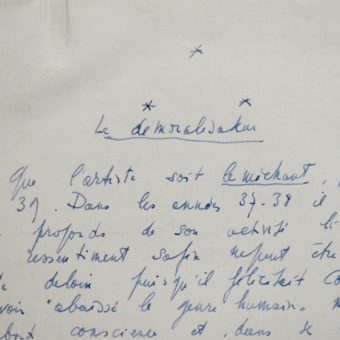 *
* *
Le démoralisateur
Que l'artiste soit le méchant,
39. Dans les années 37-38 il
profonds de son activité l
ressentiment
de loin puisqu'il félicitait Co
voir "abaissé le genre humain.
conscience et dans